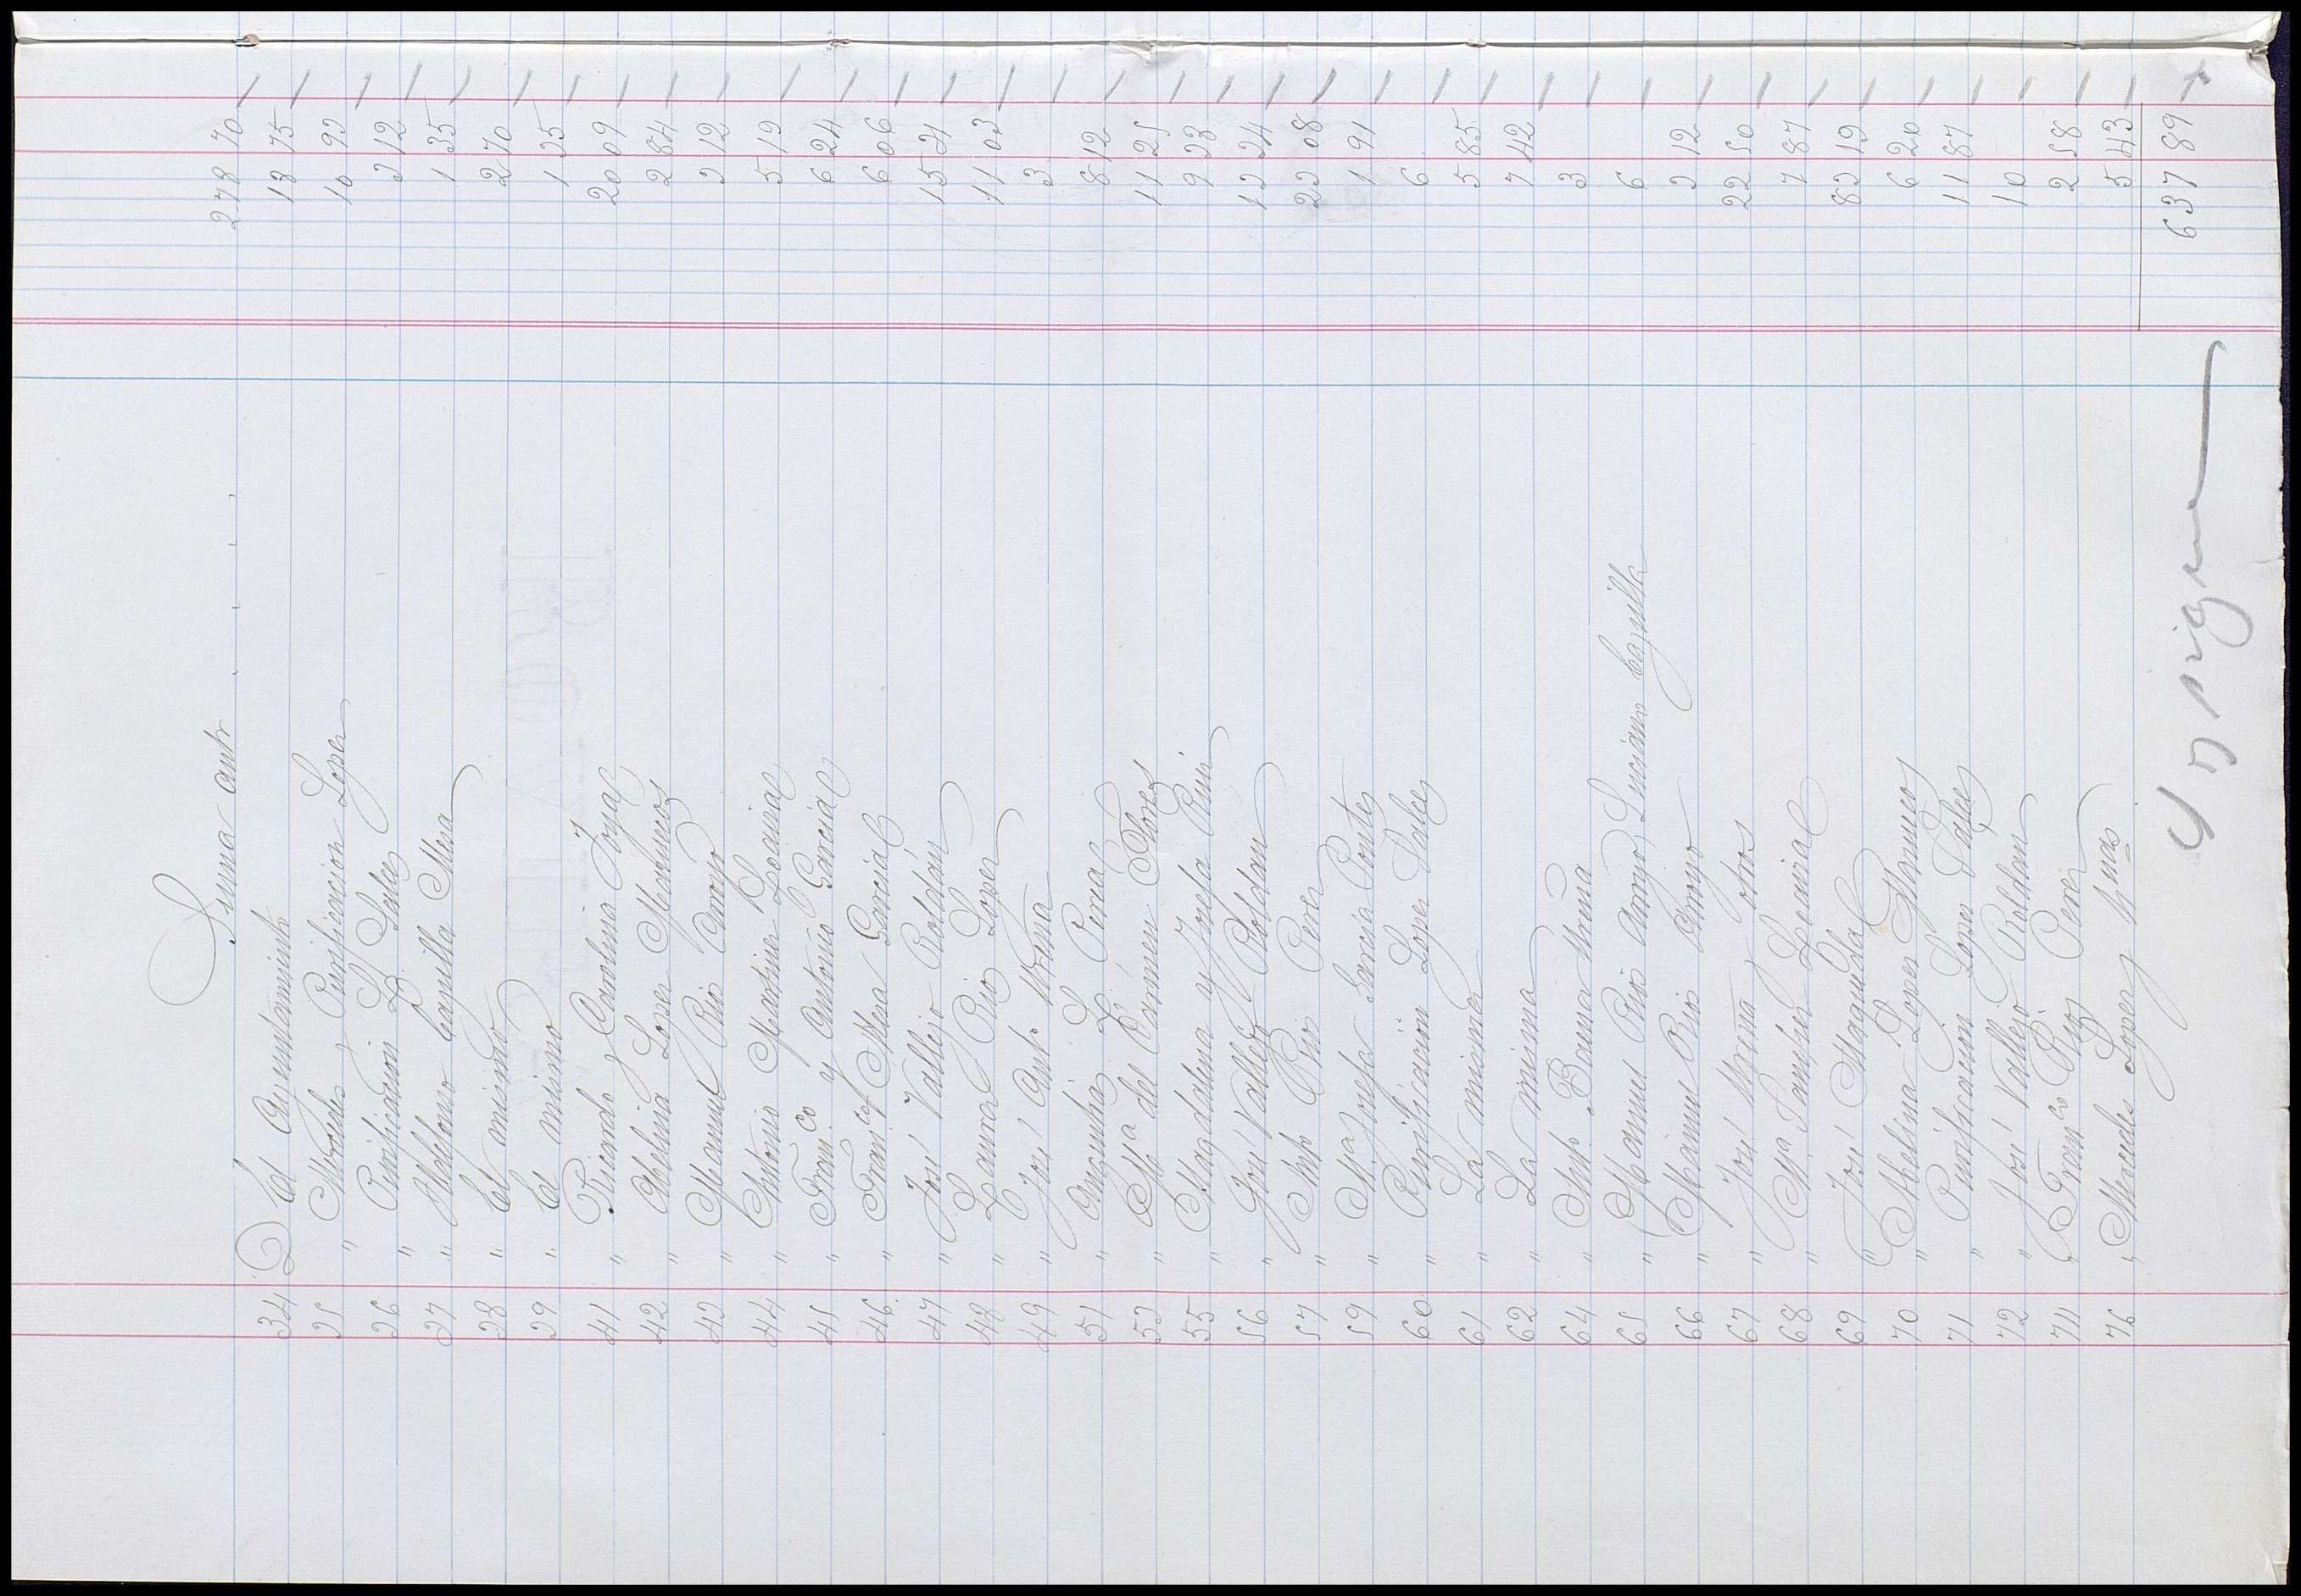 Suma antr . . . . 278 70
34 D El Ayuntamiento 13 75
35 " Mercedes y Purificacion Lopez 10 93
36 " Purificacion Lz Salces 3 12
37 " Ildefonso Cazulla Mesa 1 35
38 " El mismo 2 70
39 " El mismo 1 35
41 " Ricardo y Carolina Moyas 20 09
42 " Abelina Lopez Mermucos 2 84
43 " Manuel Rios Amoyo 3 12
44 " Antonio Martinez Looiza 5 19
45 " Franco y Antonio Garcia 6 24
46 " Franca Mesa Garcia 6 06
47 " José Vallejo Roldán 15 34
48 " Laura Rios Lopez 11 03
49 " José Anto Urena 3
51 " Augusta Lz Pena 8 12
53 " Ma del Cármen Flores 11 25
55 " Magdalena y Josefa Ruiz 9 33
56 " José Vallejo Roldan 13 34
57 " Anto Rios Perez 23 08
59 " Ma Josefa Garcia Puntes 1 91
60 " Purificacion Lopez Salces 6
61 " La misma 5 85
62 " La misma 7 42
64 " Anto Bruna Urena 3
65 " Manuel Rios Amoyo, Luciano Cazulla 6
66 " Manuel Rios Amoyo 3 12
67 " José Urena y otros 22 50
68 " Ma Sanchez Looiza 7 87
69 " José Magaula 83 19
70 " Abelina Lopez Mamucos 6 20
71 " Purificacion Lopez Salces 11 87
72 " José Vallejo Roldan 10
74 " Franco Rios Perez 2 58
76 " Mercedes Lopez Unas 5 43
637 89